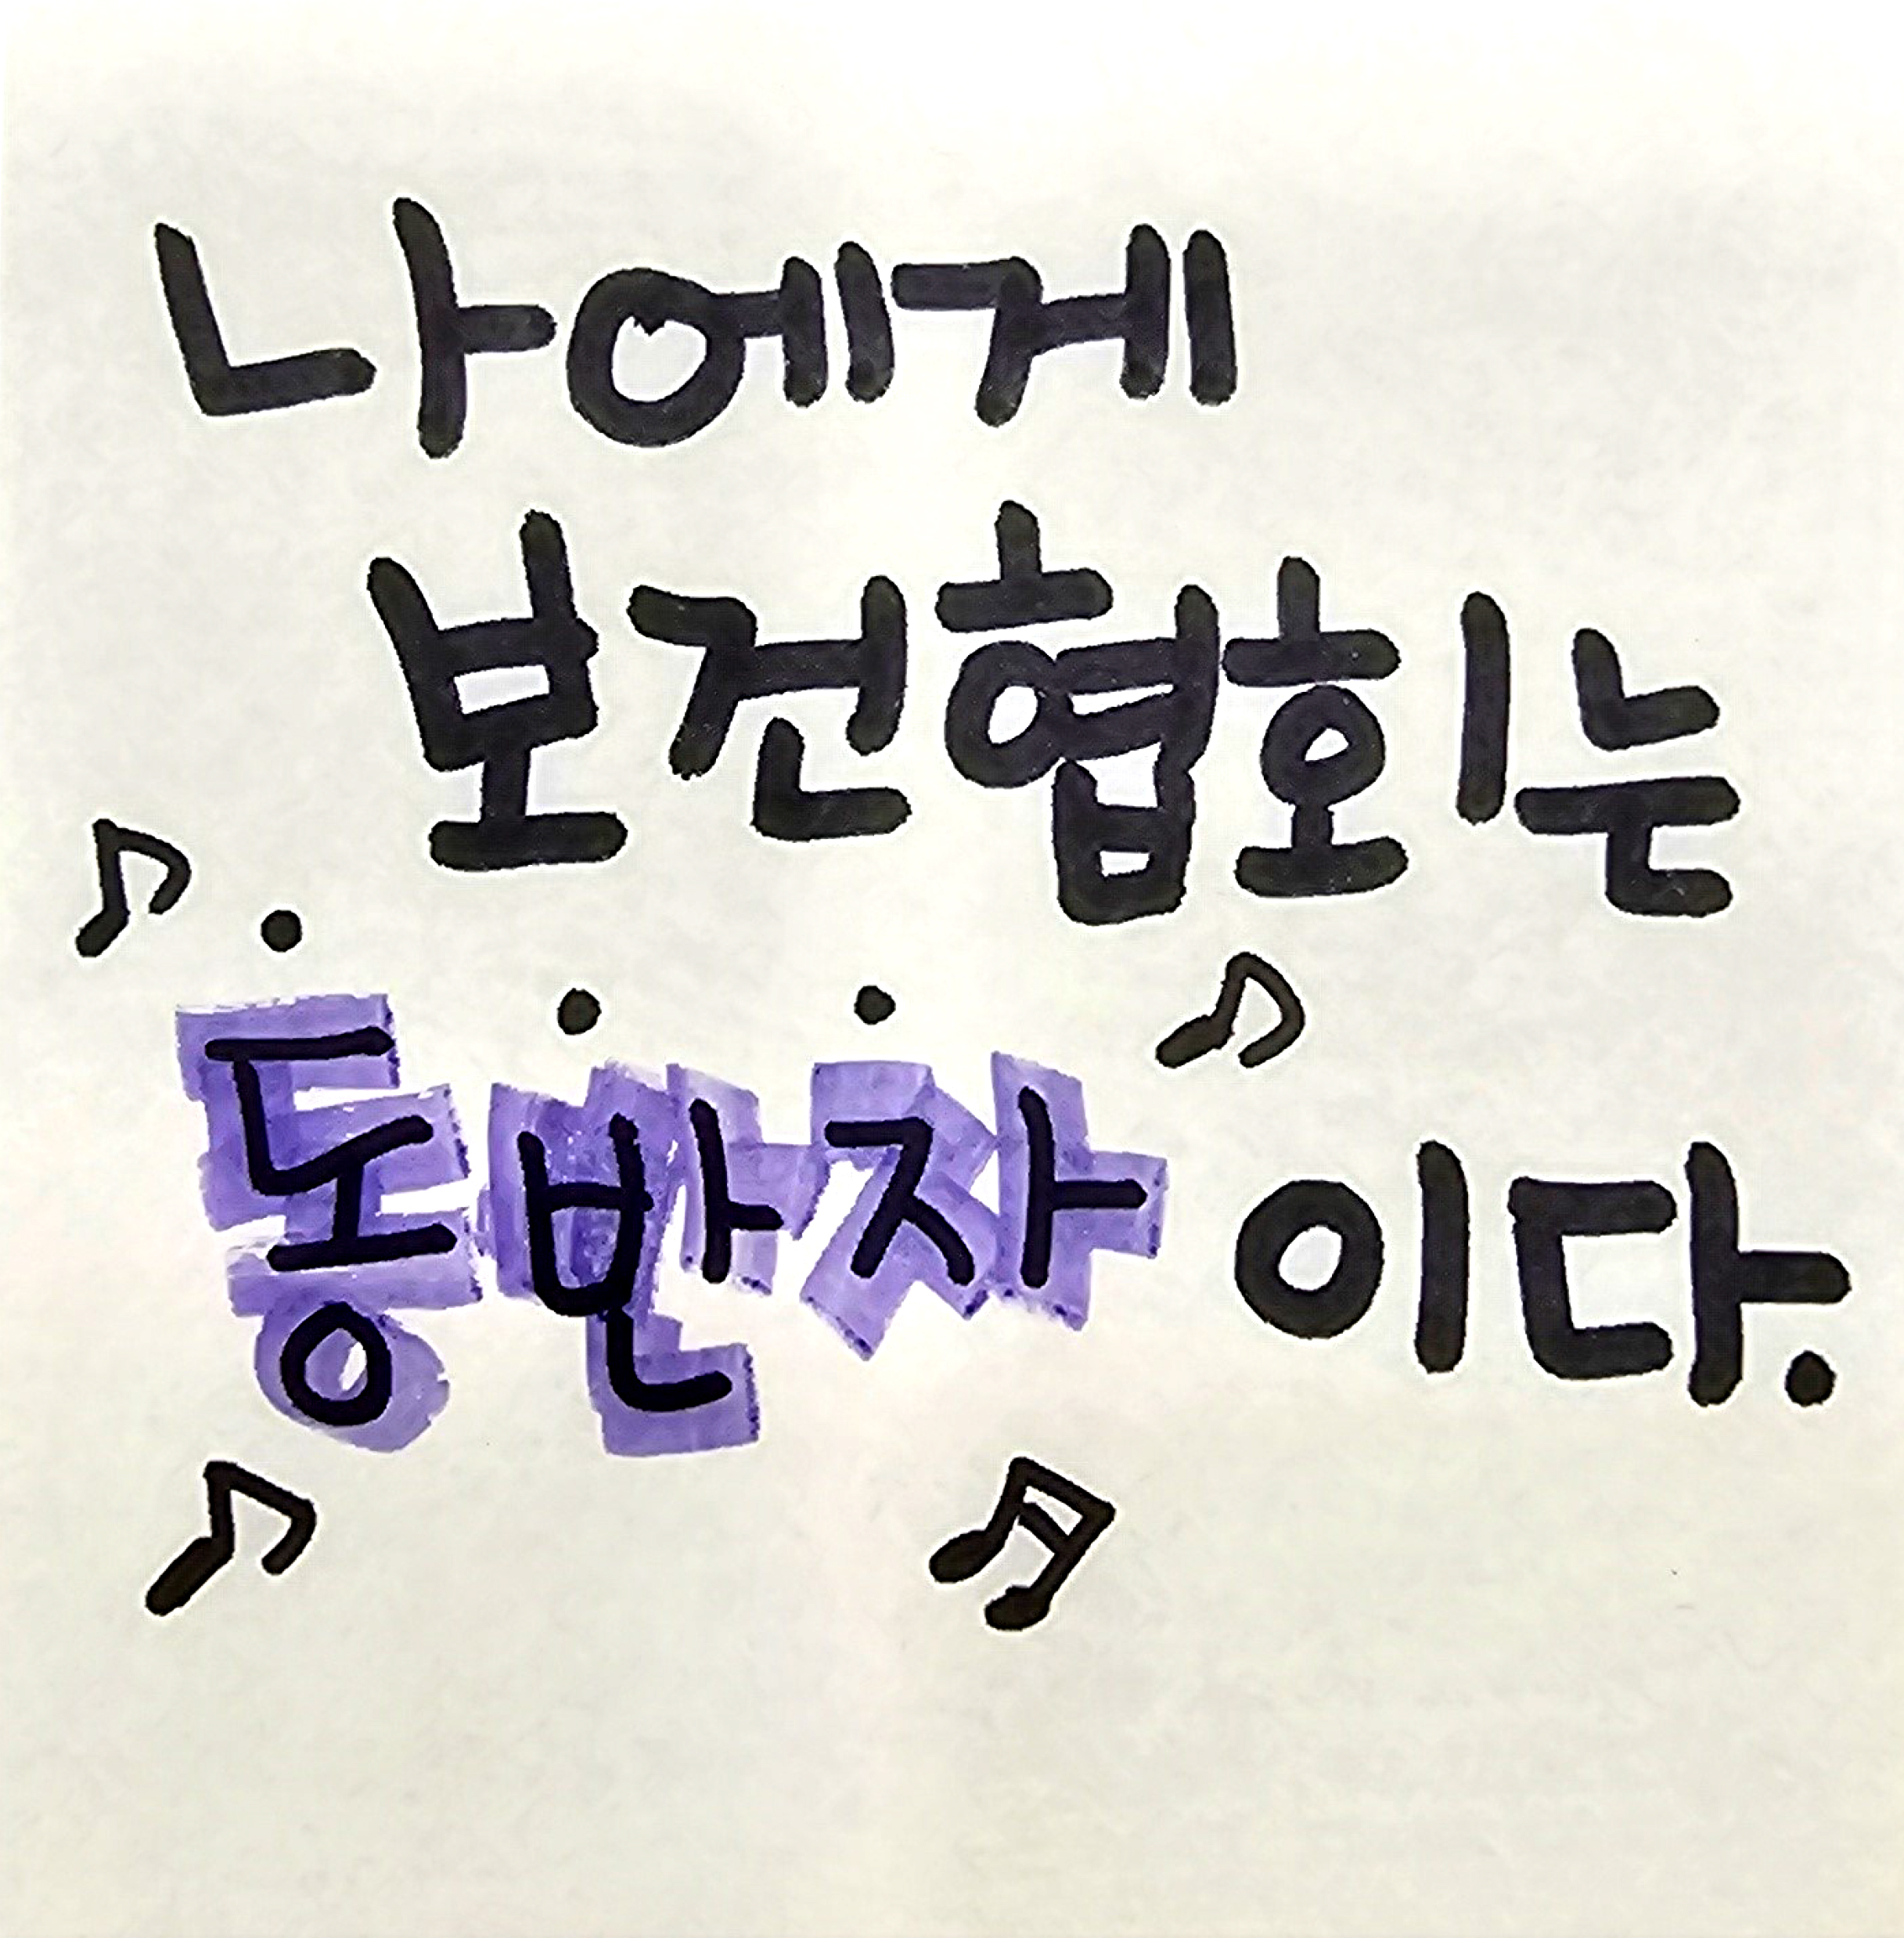 나에게
보건협회는
동반자 이다.